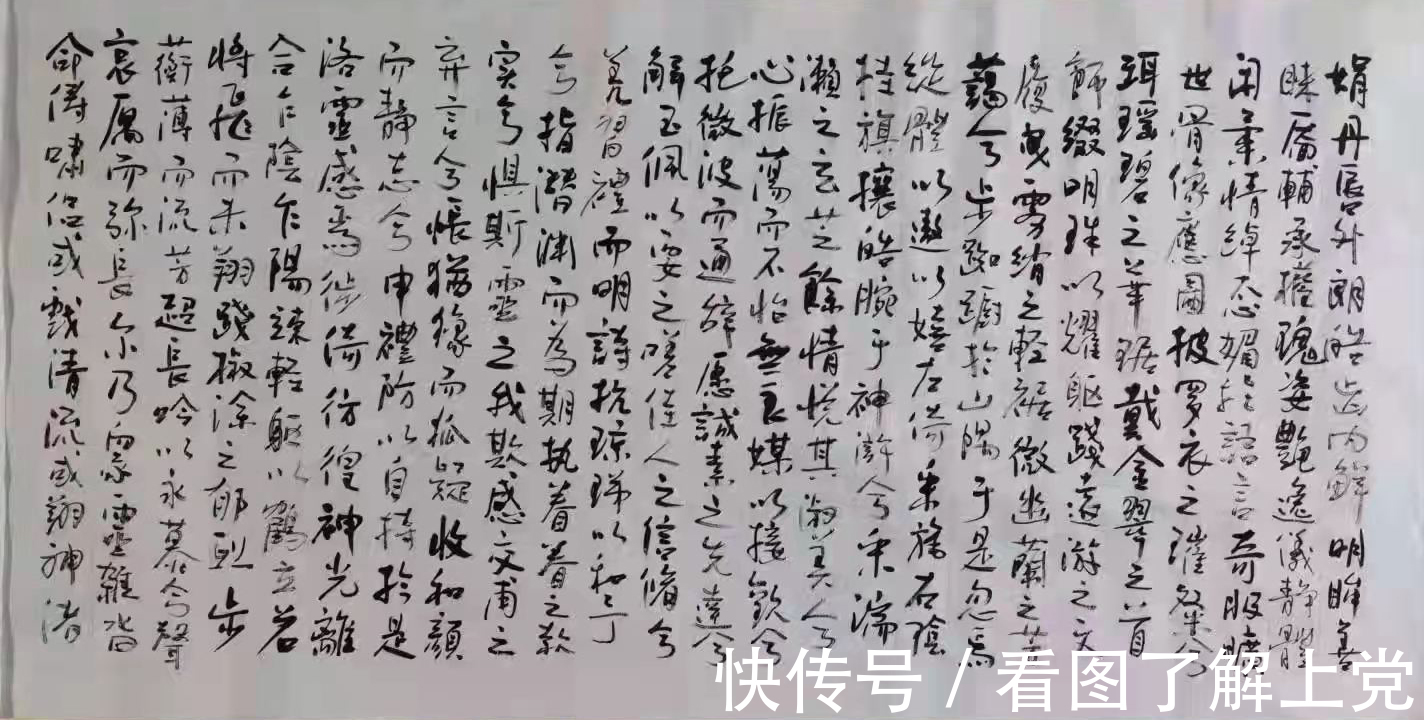 娟丹唇外朗皓齿内鲜明眸善
睐靥辅承權瑰姿艷逸儀静體
闲柔情綽态媚於語言奇服曠
世骨像應圖披罗衣之璀粲兮
珥瑶碧之華琚戴金翠之首
飾缀明珠以耀軀踐遠游之文
履曳雾绡之輕裾微幽蘭之芳
藹兮步踟蹰於山隅于是忽焉
縱體以遨以嬉左倚采旄右蔭
桂旗攘皓腕于神滸兮采湍
瀨之玄芝餘情悦其淑美兮
心振蕩而不怡無良媒以接歡兮
托微波而通辞愿誠素之先達兮
解玉佩以要之嗟佳人之信脩兮
羌習禮而明詩抗琼珶以和予
兮指潜渊而為期执眷眷之款
实兮惧斯靈之我欺感交甫之
弃言兮悵猶豫而狐疑收和顔
而静志兮申禮防以自持於是
洛靈感焉徙倚彷徨神光離
合乍陰乍陽竦輕躯以鶴立若
將飛而未翔踐椒涂之郁烈步
蘅薄而流芳超長吟以永慕兮聲
哀厲而弥長尔乃衆靈雜沓
命俦啸侣或戲清流或翔神渚
快传号 / 看图了解上党